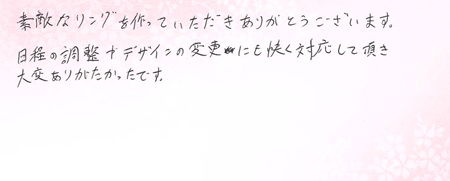 素敵なリングを作っていただきありがとうございます。
日程の調整やデザインの変更にも快く対応して頂き
大変ありがたかったです。